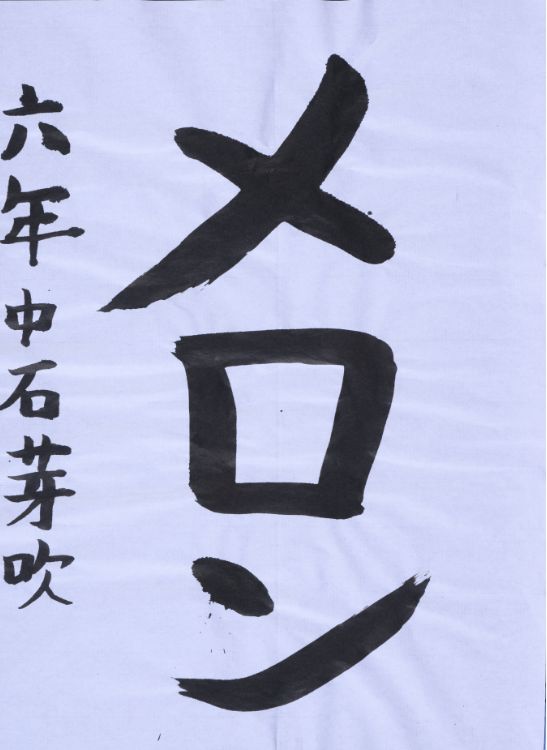 メロン
六年中石芽吹